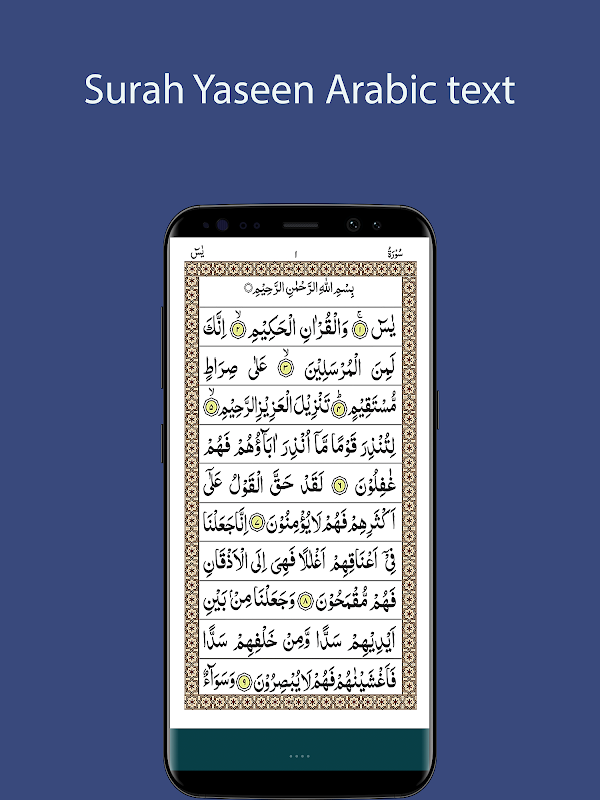 Surah Yaseen Arabic text
سُوْرَةُ ١ يٰسٓ
بِسْمِ اللّٰهِ الرَّحْمٰنِ الرَّحِيْمِ
يٰسٓ ۚ ﴿١﴾ وَالْقُرْاٰنِ الْحَكِيْمِ ۙ ﴿٢﴾ اِنَّكَ
لَمِنَ الْمُرْسَلِيْنَ ۙ ﴿٣﴾ عَلٰى صِرَاطٍ
مُّسْتَقِيْمٍ ؕ ﴿٤﴾ تَنْزِيْلَ الْعَزِيْزِ الرَّحِيْمِ ۙ ﴿٥﴾
لِتُنْذِرَ قَوْمًا مَّاۤ اُنْذِرَ اٰبَآؤُهُمْ فَهُمْ
غٰفِلُوْنَ ﴿٦﴾ لَقَدْ حَقَّ الْقَوْلُ عَلٰۤى
اَكْثَرِهِمْ فَهُمْ لَا يُؤْمِنُوْنَ ﴿٧﴾ اِنَّا جَعَلْنَا
فِيْۤ اَعْنَاقِهِمْ اَغْلٰلًا فَهِيَ اِلَى الْاَذْقَانِ
فَهُمْ مُّقْمَحُوْنَ ﴿٨﴾ وَجَعَلْنَا مِنْۢ بَيْنِ
اَيْدِيْهِمْ سَدًّا وَّمِنْ خَلْفِهِمْ سَدًّا
فَاَغْشَيْنٰهُمْ فَهُمْ لَا يُبْصِرُوْنَ ﴿٩﴾ وَسَوَآءٌ